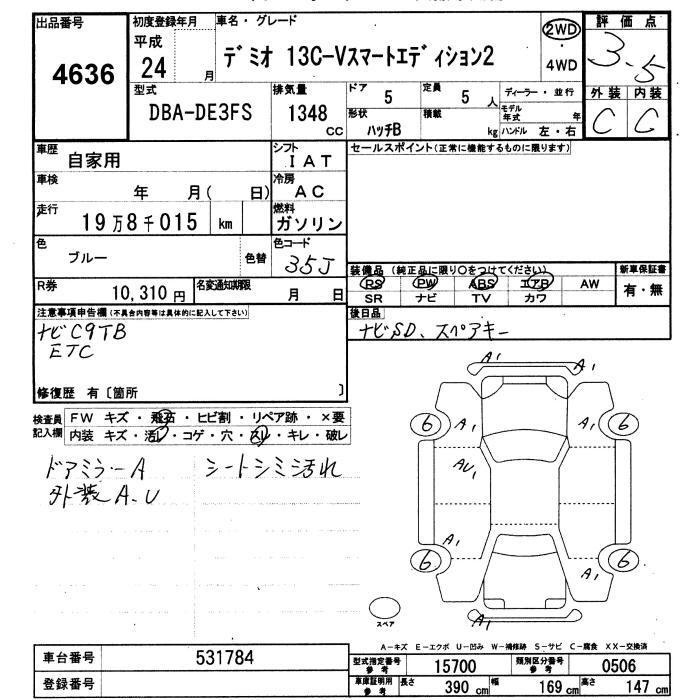 出品番号 4636
初度登録年月 平成 24 月
車名・グレード デミオ 13C-Vスマートエディション2
2WD
4WD
評価点 3.5
型式 DBA-DE3FS
排気量 1348 CC
ドア 5
定員 5 人
形状 ハッチB
積載 kg
ディーラー・並行
モデル年式 年
ハンドル 左・右
外装 C
内装 C
車歴 自家用
シフト IAT
セールスポイント(正常に機能するものに限ります)
車検 年 月( 日)
冷房 AC
走行 19万8千015 km
燃料 ガソリン
色 ブルー 色替
色コード 35J
装備品 (純正品に限り○をつけてください)
新車保証書
PS PW ABS エアB AW
有・無
SR ナビ TV カワ
R券 10,310 円
名変通知期限 月 日
注意事項申告欄(不具合内容等は具体的に記入して下さい)
ナビC9TB
ETC
後日品
ナビSD、スペアキー
修復歴 有〔箇所 〕
検査員記入欄
FW キズ・飛石・ヒビ割・リペア跡・×要
内装 キズ・汚レ・コゲ・穴・スレ・キレ・破レ
ドアミラーA シートシミ汚れ
外装A.U
A1
A1
6 A1 A1 6
AU1
A1
6 A1 6
A1
スペア
A-キズ E-エクボ U-凹み W-補修跡 S-サビ C-腐食 XX-交換済
車台番号 531784
型式指定番号 参考 15700
類別区分番号 参考 0506
登録番号
車庫証明用 参考 長さ 390 cm 幅 169 cm 高さ 147 cm